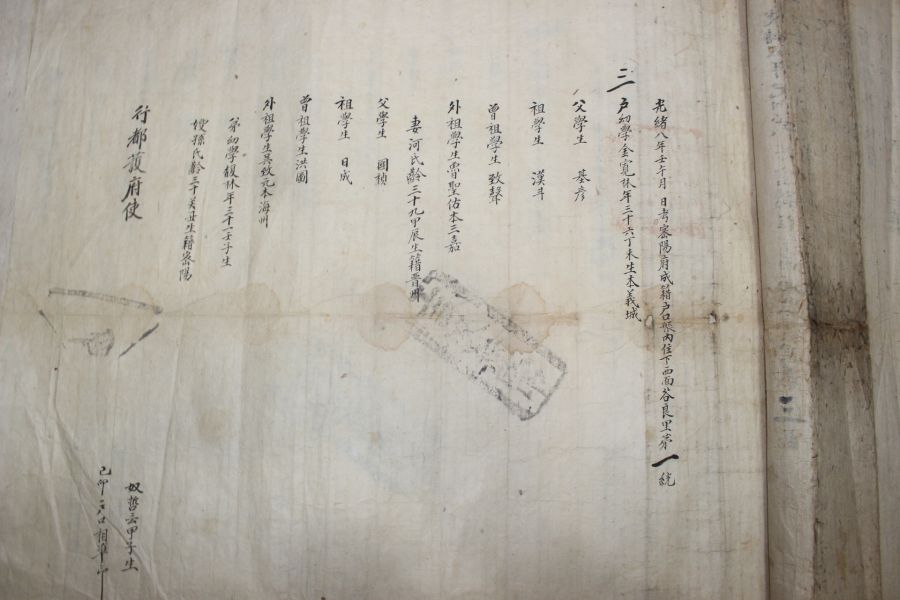 光緒八年壬午月 日考密陽府成籍戶口帳內住下西面谷良里第一統
三戶幼學金寬休年三十六丁未生本義城
父學生 基彦
祖學生 漢斗
曾祖學生 致聲
外祖學生曺聖佑本三嘉
妻河氏齡三十九甲辰生籍晋州
父學生 國楨
祖學生 日成
曾祖學生洪圖
外祖學生吳致元本海州
弟幼學 休年三十一壬子生
嫂孫氏齡三十 丑生籍密陽
行都護府使
奴哲云甲子生
己卯戶口相準印